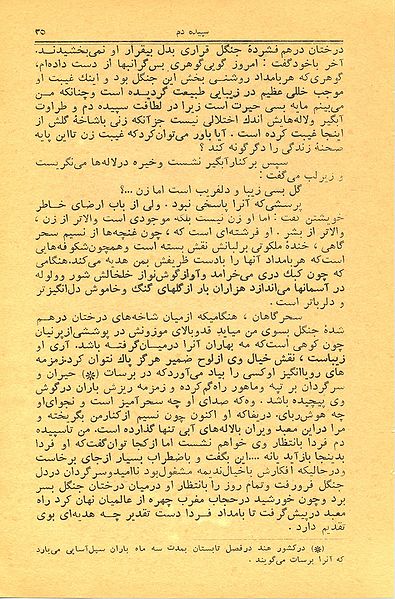 سپیده دم
۳۵
درختان درهم فشردهٔ جنگل قراری بدل بیقرار او نمی‌بخشیدند.
آخر باخودگفت : امروز گویی‌گوهری بس‌گرانبها از دست داده‌ام،
گوهری‌که هربامداد روشنی بخش این جنگل بود و اینك غیبت او
موجب خللی عظیم در زیبایی طبیعت گردیده است وچنانکه من
می‌بینم مایه بسی حیرت است زیرا در لطافت سپیده دم و طراوت
آبگیر ولاله‌هایش اندك اختلالی نیست جزآنکه زنی باشاخهٔ گلش از
اینجا غیبت کرده است . آیا باور می‌توان‌کردکه غیبت زن تااین پایه
صحنهٔ زندگی را دگرگونه کند ؟
سپس برکنارآبگیر نشست وخیره درلاله‌ها می‌نگریست
و زیرلب می‌گفت :
گل بسی زیبا و دلفریب است اما زن ...؟
پرسشی‌که آنرا پاسخی نبود . ولی از باب ارضای خاطر
خویشتن گفت : اما او زن نیست بلکه موجودی است والاتر از زن ،
والاتر از بشر . او فرشته‌ای است که ، چون غنچه‌ها از نسیم سحر
گاهی ، خندهٔ ملکوتی برلبانش نقش بسته است وهمچون‌شکوفه‌هایی
است‌که هربامداد آنها را بادست ظریفش بمن هدیه می‌کند.هنگامی
که چون کبك دری می‌خرامد وآوازگوش‌نواز خلخالش شور وولوله
در آسمانها می‌اندازد هزاران بار ازگلهای گنگ وخاموش دل‌انگیزتر
و دلرباتر است .
سحرگاهان ، هنگامیکه ازمیان شاخه‌های درختان درهم
شدهٔ جنگل بسوی من میاید قدوبالای موزونش در پوششی‌ازپرنیان
چون کوهی است‌که مه بهاران آنرا درمیان‌گرفته باشد. آری او
زیباست ، نقش خیال وی ازلوح ضمیر هرگز پاك نتوان کردزمزمه
های رویاانگیز اوکسی را بیاد می‌آوردکه در برسات (*) حیران و
سرگردان بر تپه وماهور راه‌گم‌کرده و زمزمه ریزش باران درگوش
وی پیچیده باشد . وه‌که صدای او چه سحرآمیز است و نجوای‌او
چه هوش‌ربای، دریغاکه او اکنون چون نسیم ازکنارمن بگریخته و
مرا دراین معبد ویران بالاله‌های آبی تنها گذارده است. من تاسپیده
دم فردا بانتظار وی خواهم نشست اما ازکجا توان‌گفت‌که او فردا
بدینجا بازآید یانه ....این بگفت و باضطراب بسیار ازجای برخاست
ودرحالیکه افکارش باخیال‌ندیمه مشغول‌بود ناامیدوسرگردان دردل
جنگل فرورفت وتمام روز را بانتظار او درمیان درختان جنگل بسر
برد وچون خورشید درحجاب مغرب چهره از عالمیان نهان کرد راه
معبد درپیش‌گرفت تا بامداد فردا دست تقدیر چه هدیه‌ای بوی
تقدیم دارد .
(*) درکشور هند درفصل تابستان بمدت سه ماه باران سیل‌آسایی می‌بارد
که آنرا برسات می‌گویند .